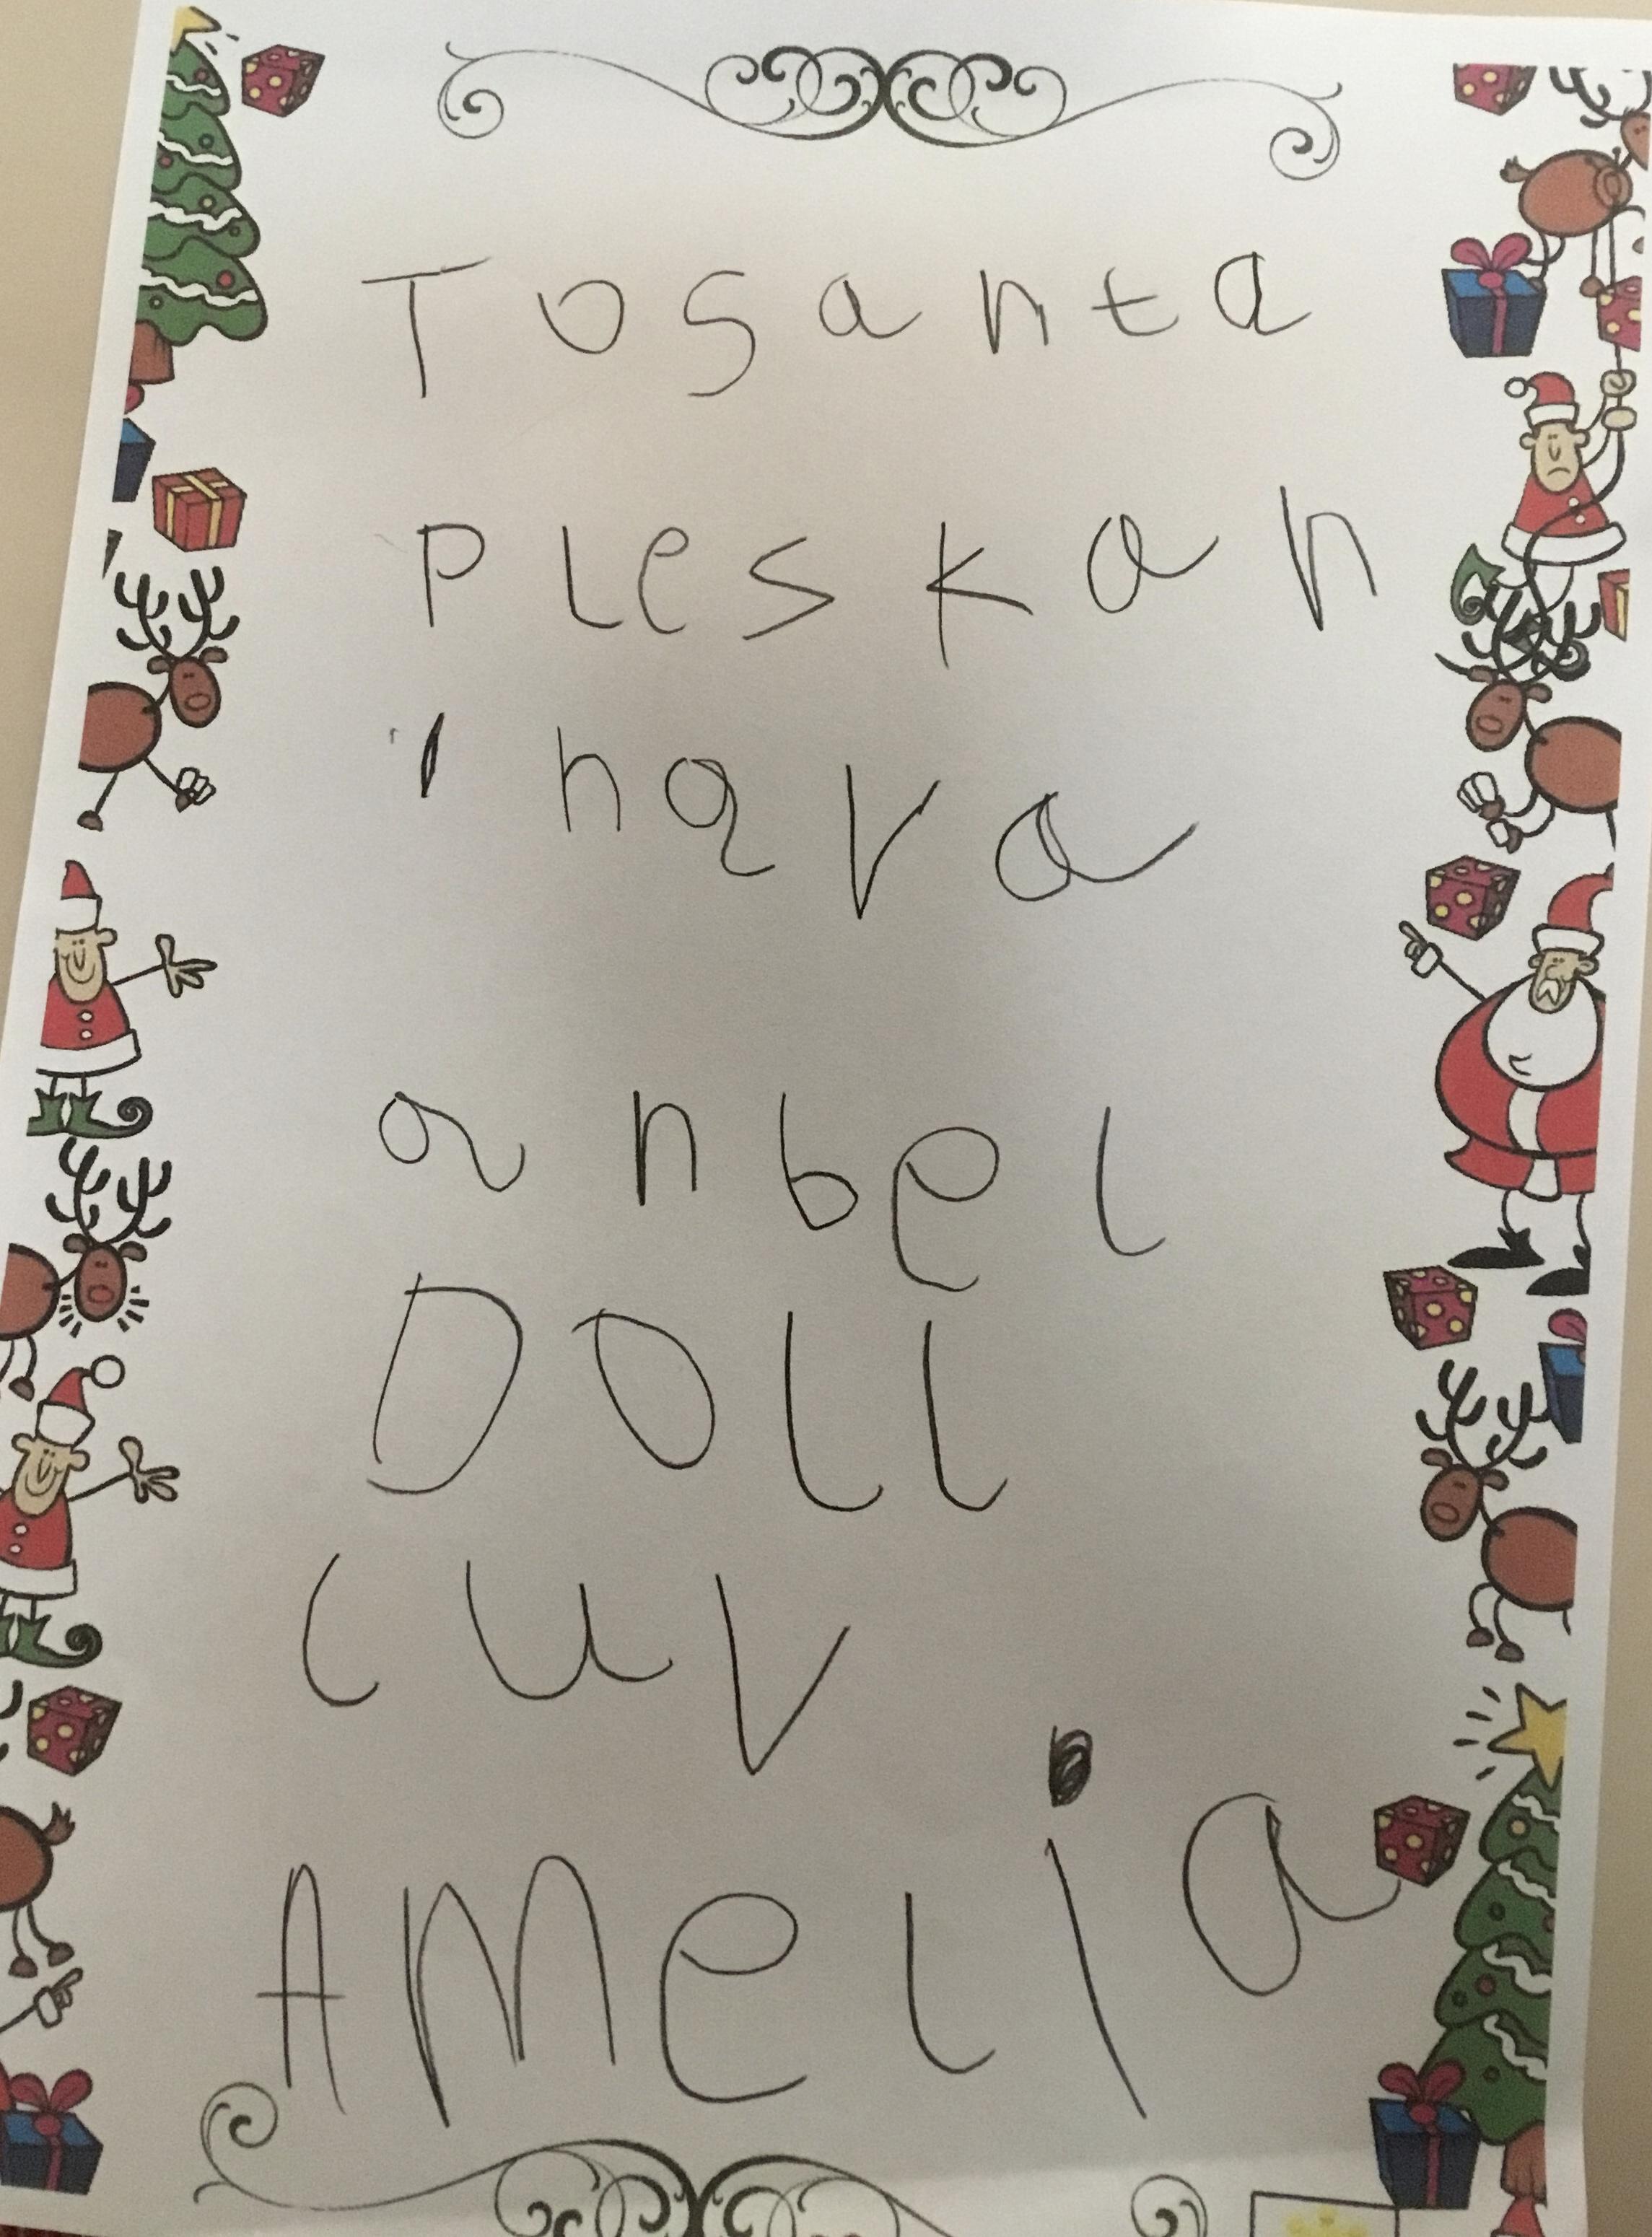 To santa
Ples kan
i hav a
anbel
Doll
luv
Amelia